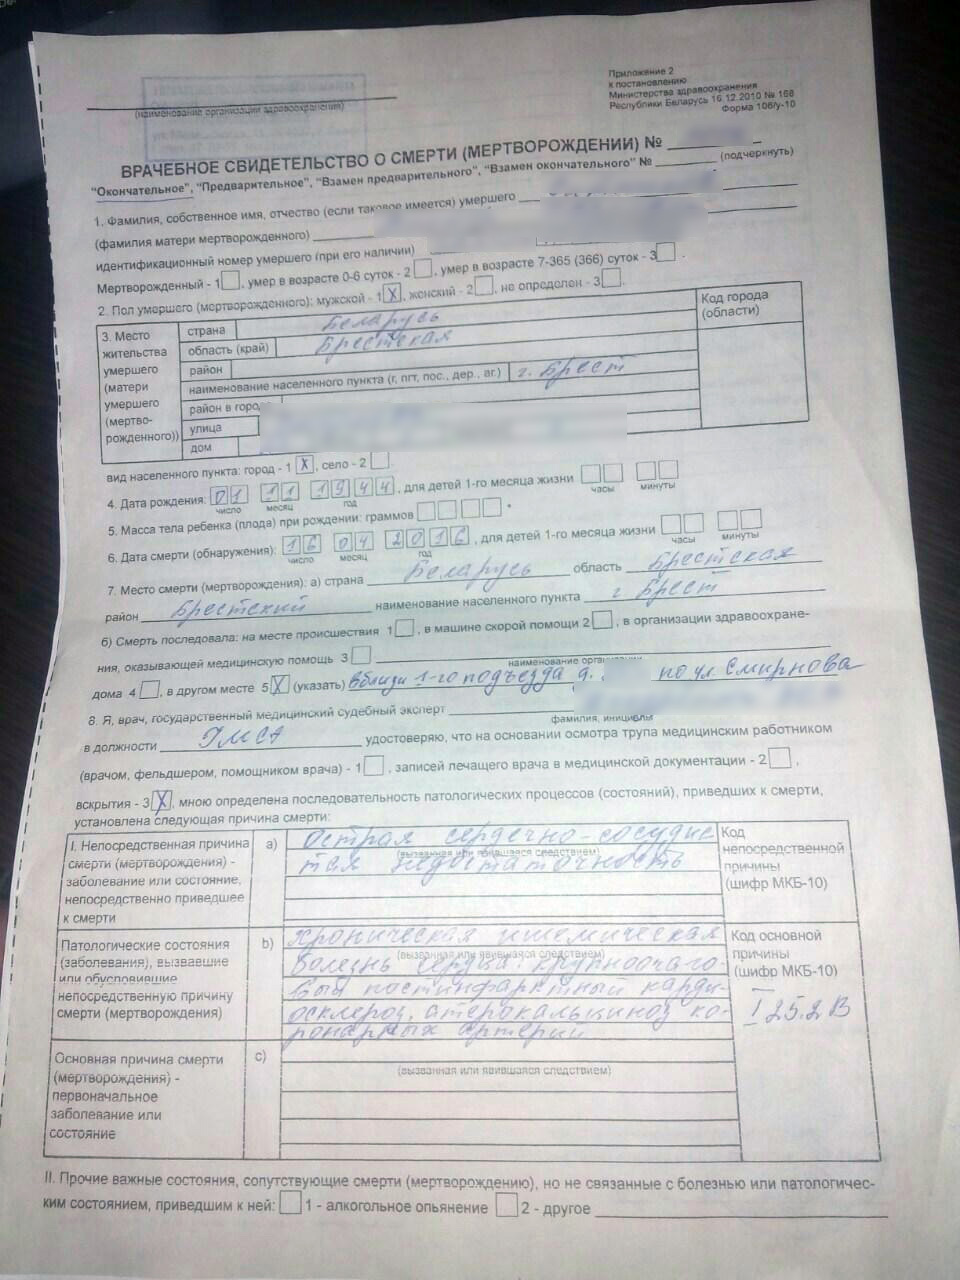 Приложение 2
к постановлению
Министерства здравоохранения
Республики Беларусь 16.12.2010 № 168
Форма 106/у-10
(наименование организации здравоохранения)
ВРАЧЕБНОЕ СВИДЕТЕЛЬСТВО О СМЕРТИ (МЕРТВОРОЖДЕНИИ) №
"Окончательное", "Предварительное", "Взамен предварительного", "Взамен окончательного" № (подчеркнуть)
1. Фамилия, собственное имя, отчество (если таковое имеется) умершего
(фамилия матери мертворожденного)
идентификационный номер умершего (при его наличии)
Мертворожденный - 1, умер в возрасте 0-6 суток - 2, умер в возрасте 7-365 (366) суток - 3.
2. Пол умершего (мертворожденного): мужской - 1 X, женский - 2, не определен - 3.
3. Место жительства умершего (матери умершего (мертво-рожденного))
страна Беларусь
область (край) Брестская
район
наименование населенного пункта (г, пгт, пос., дер., аг.) г. Брест
район в городе
улица
дом
Код города (области)
вид населенного пункта: город - 1 X, село - 2.
4. Дата рождения: 01 11 1944, для детей 1-го месяца жизни
число месяц год часы минуты
5. Масса тела ребенка (плода) при рождении: граммов
6. Дата смерти (обнаружения): 16 04 2016, для детей 1-го месяца жизни
число месяц год часы минуты
7. Место смерти (мертворождения): а) страна Беларусь область Брестская
район Брестский наименование населенного пункта г Брест
б) Смерть последовала: на месте происшествия 1, в машине скорой помощи 2, в организации здравоохране-
ния, оказывающей медицинскую помощь 3
наименование
дома 4, в другом месте 5 X (указать) вблизи 1-го подъезда д. по ул. Смирнова
8. Я, врач, государственный медицинский судебный эксперт
фамилия, инициалы
в должности ГМСЭ удостоверяю, что на основании осмотра трупа медицинским работником
(врачом, фельдшером, помощником врача) - 1, записей лечащего врача в медицинской документации - 2,
вскрытия - 3 X, мною определена последовательность патологических процессов (состояний), приведших к смерти,
установлена следующая причина смерти:
I. Непосредственная причина смерти (мертворождения) - заболевание или состояние, непосредственно приведшее к смерти
а) острая сердечно-сосудис
(вызванная или явившаяся следствием)
тая недостаточность
Код непосредственной причины (шифр МКБ-10)
Патологические состояния (заболевания), вызвавшие или обусловившие непосредственную причину смерти (мертворождения)
b) хроническая ишемическая
(вызванная или явившаяся следствием)
болезнь сердца: крупноочаго-
вый постинфарктный карди-
осклероз, атерокальциноз ко-
ронарных артерий
Код основной причины (шифр МКБ-10)
I 25.2 В
Основная причина смерти (мертворождения) - первоначальное заболевание или состояние
c)
(вызванная или явившаяся следствием)
II. Прочие важные состояния, сопутствующие смерти (мертворождению), но не связанные с болезнью или патологичес-
ким состоянием, приведшим к ней: 1 - алкогольное опьянение 2 - другое